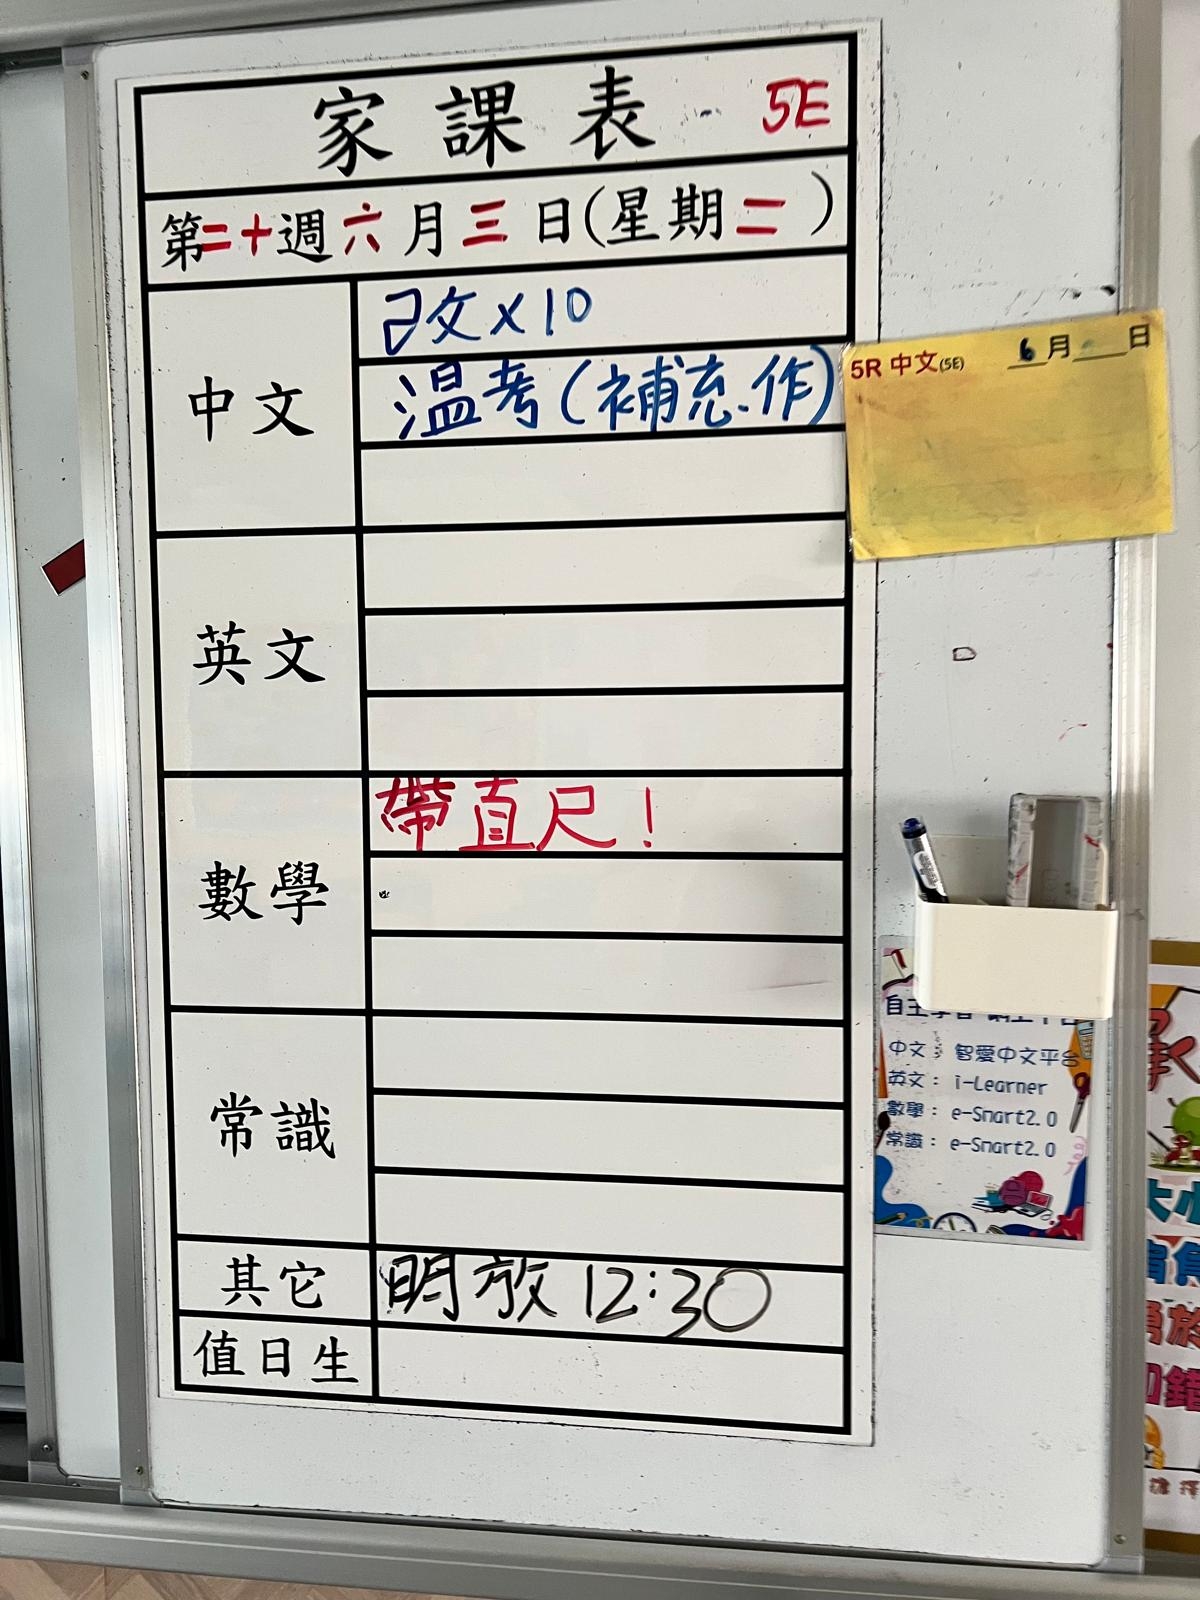 家課表 5E
第二十週六月三日(星期二)
中文
改文x10
温考(補充.作)
英文
數學
帶直尺!
常識
其它
明放 12:30
值日生
5R 中文(5E) 6月__日
中文: 智愛中文平台
英文: i-Learner
數學: e-Smart2.0
常識: e-Smart2.0